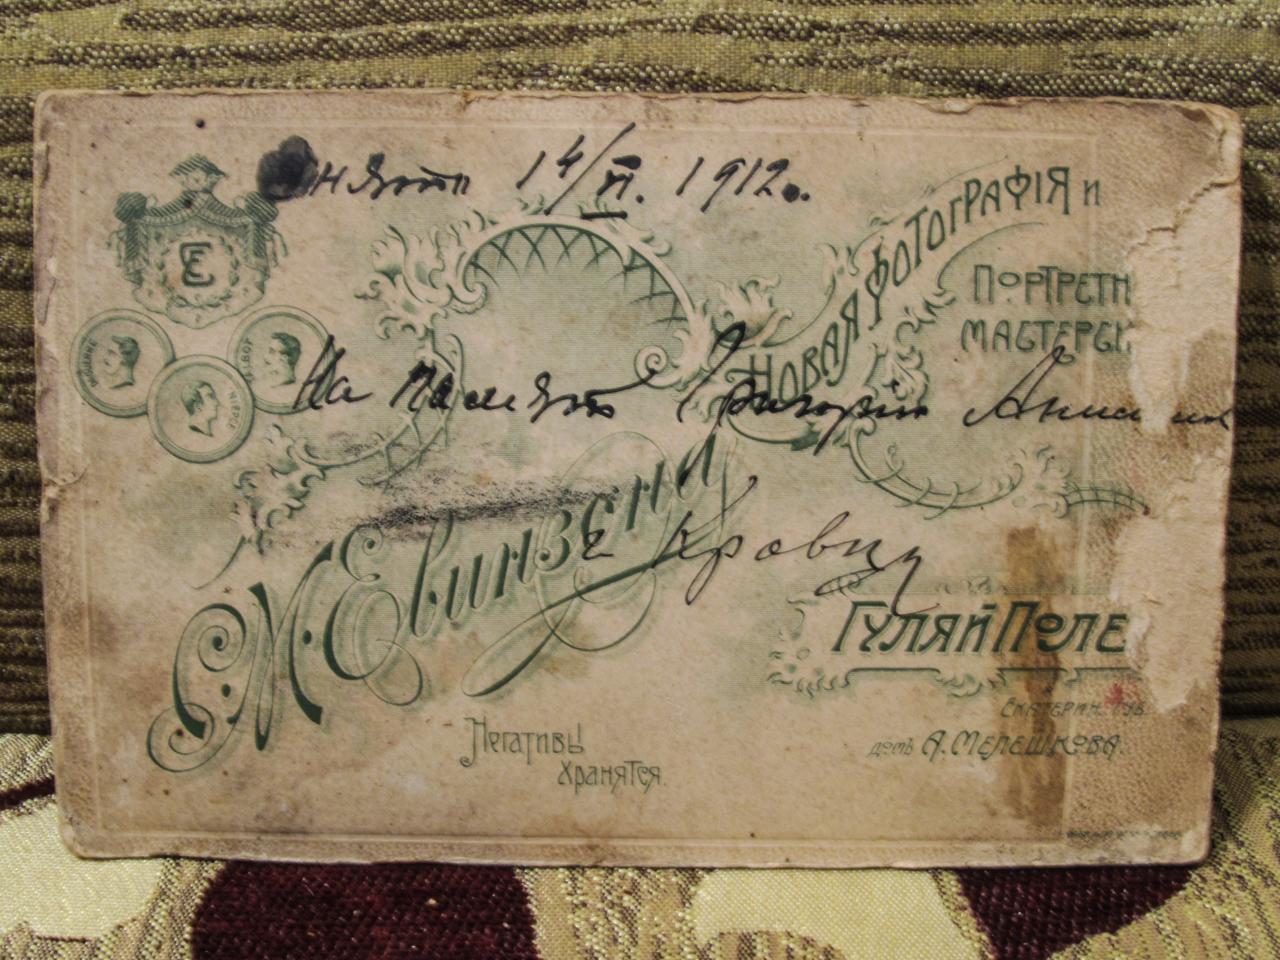 Снято 14/VI. 1912.
НОВАЯ ФОТОГРАФІЯ и
ПОРТРЕТН
МАСТЕРСК
На память Григорію
М. Евинзена
Кровцу
ГУЛЯЙ ПОЛЕ
ЕКАТЕРИН. ГУБ.
домъ А. МЕЛЕШКОВА.
Негативы
хранятся.